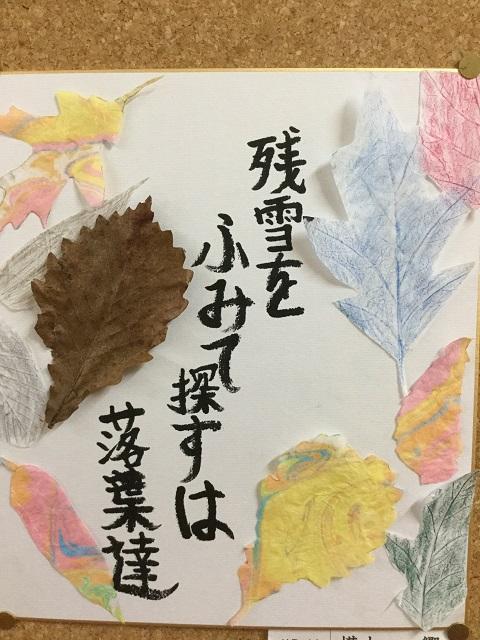 残雪を
ふみて探すは
落葉達